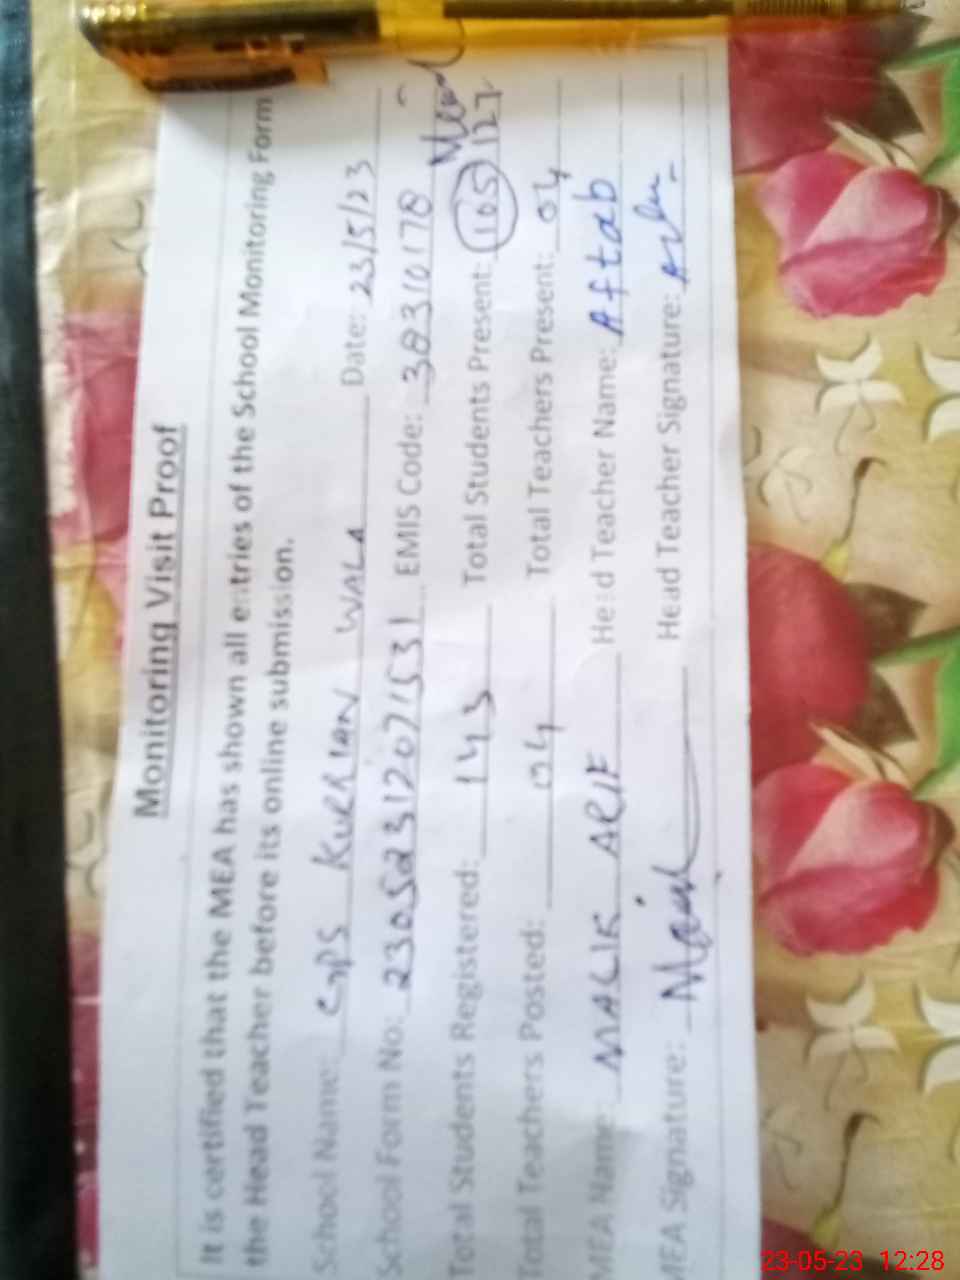 Monitoring Visit Proof
It is certified that the MEA has shown all entries of the School Monitoring Form
the Head Teacher before its online submission.
School Name: GPS KURRIAN WALA Date: 23/5/23
School Form No: 23052312071531 EMIS Code: 38310178
Total Students Registered: 143 Total Students Present: 105 127
Total Teachers Posted: 04 Total Teachers Present: 04
MEA Name: MALIK ARIF Head Teacher Name: Aftab
MEA Signature: Head Teacher Signature:
23-05-23 12:28